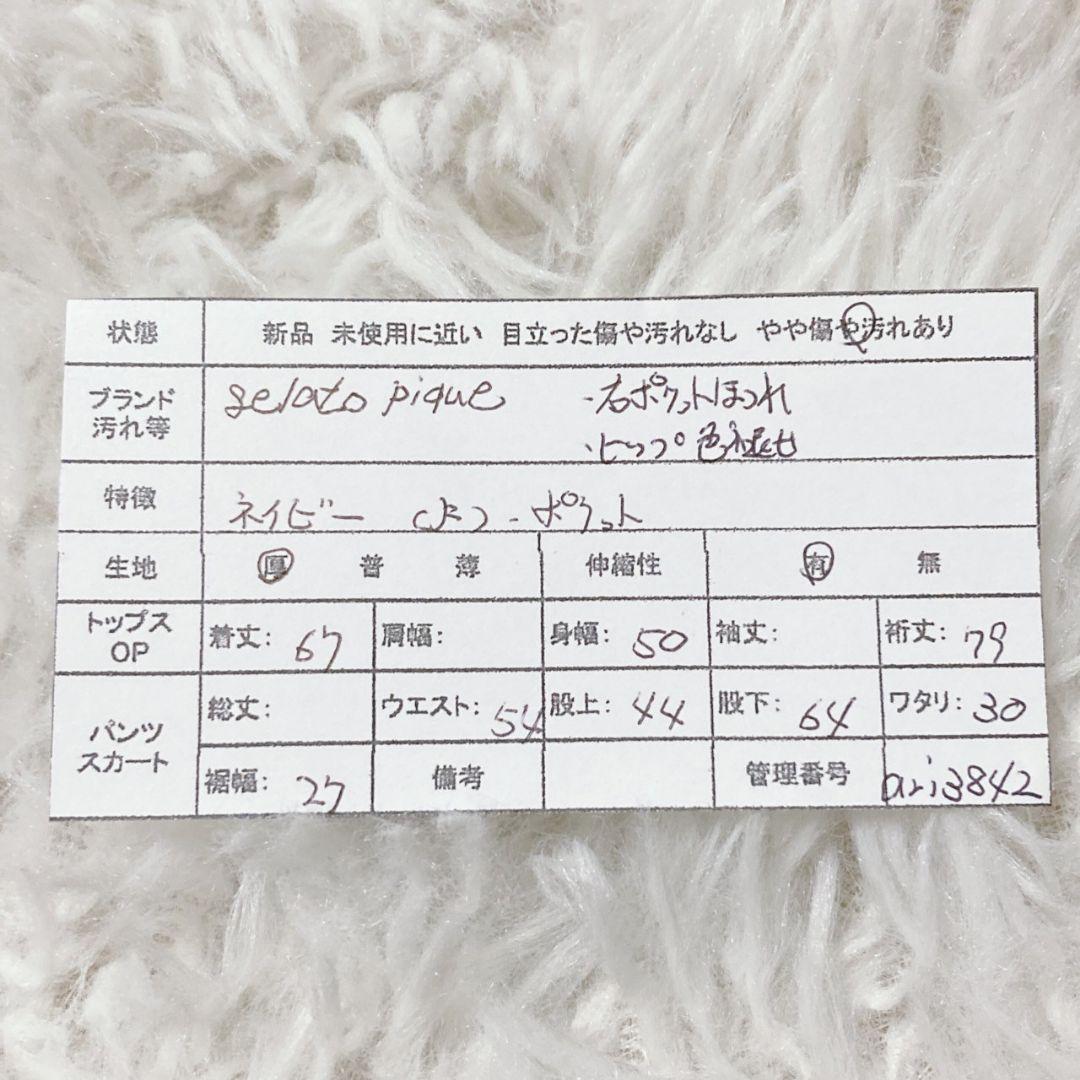 状態 新品 未使用に近い 目立った傷や汚れなし やや傷や汚れあり
ブランド 汚れ等 gelato pique ・右ポケットほつれ
・ヒップ色褪せ
特徴 ネイビー ポケット
生地 厚 普 薄 伸縮性 有 無
トップス OP 着丈: 67 肩幅: 身幅: 50 袖丈: 裄丈: 79
パンツ スカート 総丈: ウエスト: 54 股上: 44 股下: 64 ワタリ: 30
裾幅: 27 備考 管理番号 ari3842